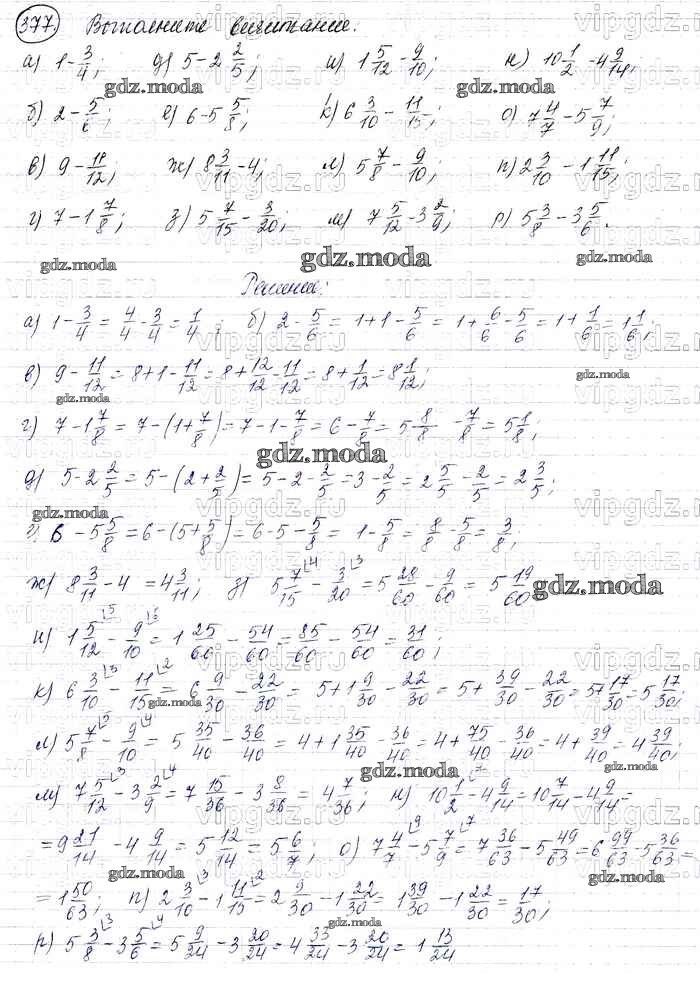 377. Выполните вычитание:
а) 1-3/4; д) 5-2 2/5; и) 1 5/12-9/10; н) 10 1/2-4 9/14;
gdz.moda
б) 2-5/6; е) 6-5 5/8; к) 6 3/10-11/15; о) 7 4/7-5 7/9;
в) 9-11/12; ж) 8 3/11-4; л) 5 7/8-9/10; п) 2 3/10-1 11/15;
г) 7-1 7/8; з) 5 7/15-3/20; м) 7 5/12-3 2/9; р) 5 3/8-3 5/6.
gdz.moda gdz.moda gdz.moda
Решение:
а) 1-3/4=4/4-3/4=1/4; б) 2-5/6=1+1-5/6=1+6/6-5/6=1+1/6=1 1/6;
в) 9-11/12=8+1-11/12=8+12/12-11/12=8+1/12=8 1/12;
gdz.moda gdz.moda
г) 7-1 7/8=7-(1+7/8)=7-1-7/8=6-7/8=5 8/8-7/8=5 1/8;
gdz.moda
д) 5-2 2/5=5-(2+2/5)=5-2-2/5=3-2/5=2 5/5-2/5=2 3/5;
gdz.moda
6-5 5/8=6-(5+5/8)=6-5-5/8=1-5/8=8/8-5/8=3/8;
ж) 8 3/11-4=4 3/11; з) 5 7/15-3/20=5 28/60-9/60=5 19/60
gdz.moda
и) 1 5/12-9/10=1 25/60-54/60=85/60-54/60=31/60;
к) 6 3/10-11/15=6 9/30-22/30=5+1 9/30-22/30=5+39/30-22/30=5+17/30=5 17/30;
gdz.moda
л) 5 7/8-9/10=5 35/40-36/40=4+1 35/40-36/40=4+75/40-36/40=4+39/40=4 39/40;
gdz.moda gdz.moda
м) 7 5/12-3 2/9=7 15/36-3 8/36=4 7/36; н) 10 1/2-4 9/14=10 7/14-4 9/14=
=9 21/14-4 9/14=5 12/14=5 6/7; о) 7 4/7-5 7/9=7 36/63-5 49/63=6 99/63-5 36/63=
gdz.moda gdz.moda
=1 50/63; п) 2 3/10-1 11/15=2 9/30-1 22/30=1 39/30-1 22/30=17/30;
gdz.moda
р) 5 3/8-3 5/6=5 9/24-3 20/24=4 33/24-3 20/24=1 13/24
gdz.moda